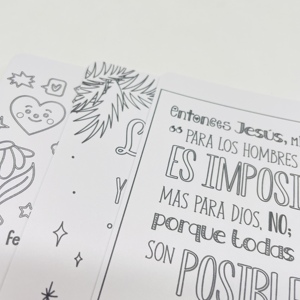 entonces Jesús, M
PARA LOS HOMBRES
ES IMPOSI
MAS PARA DIOS, NO;
porque todas
SON POSIBLE
L
Y
fe